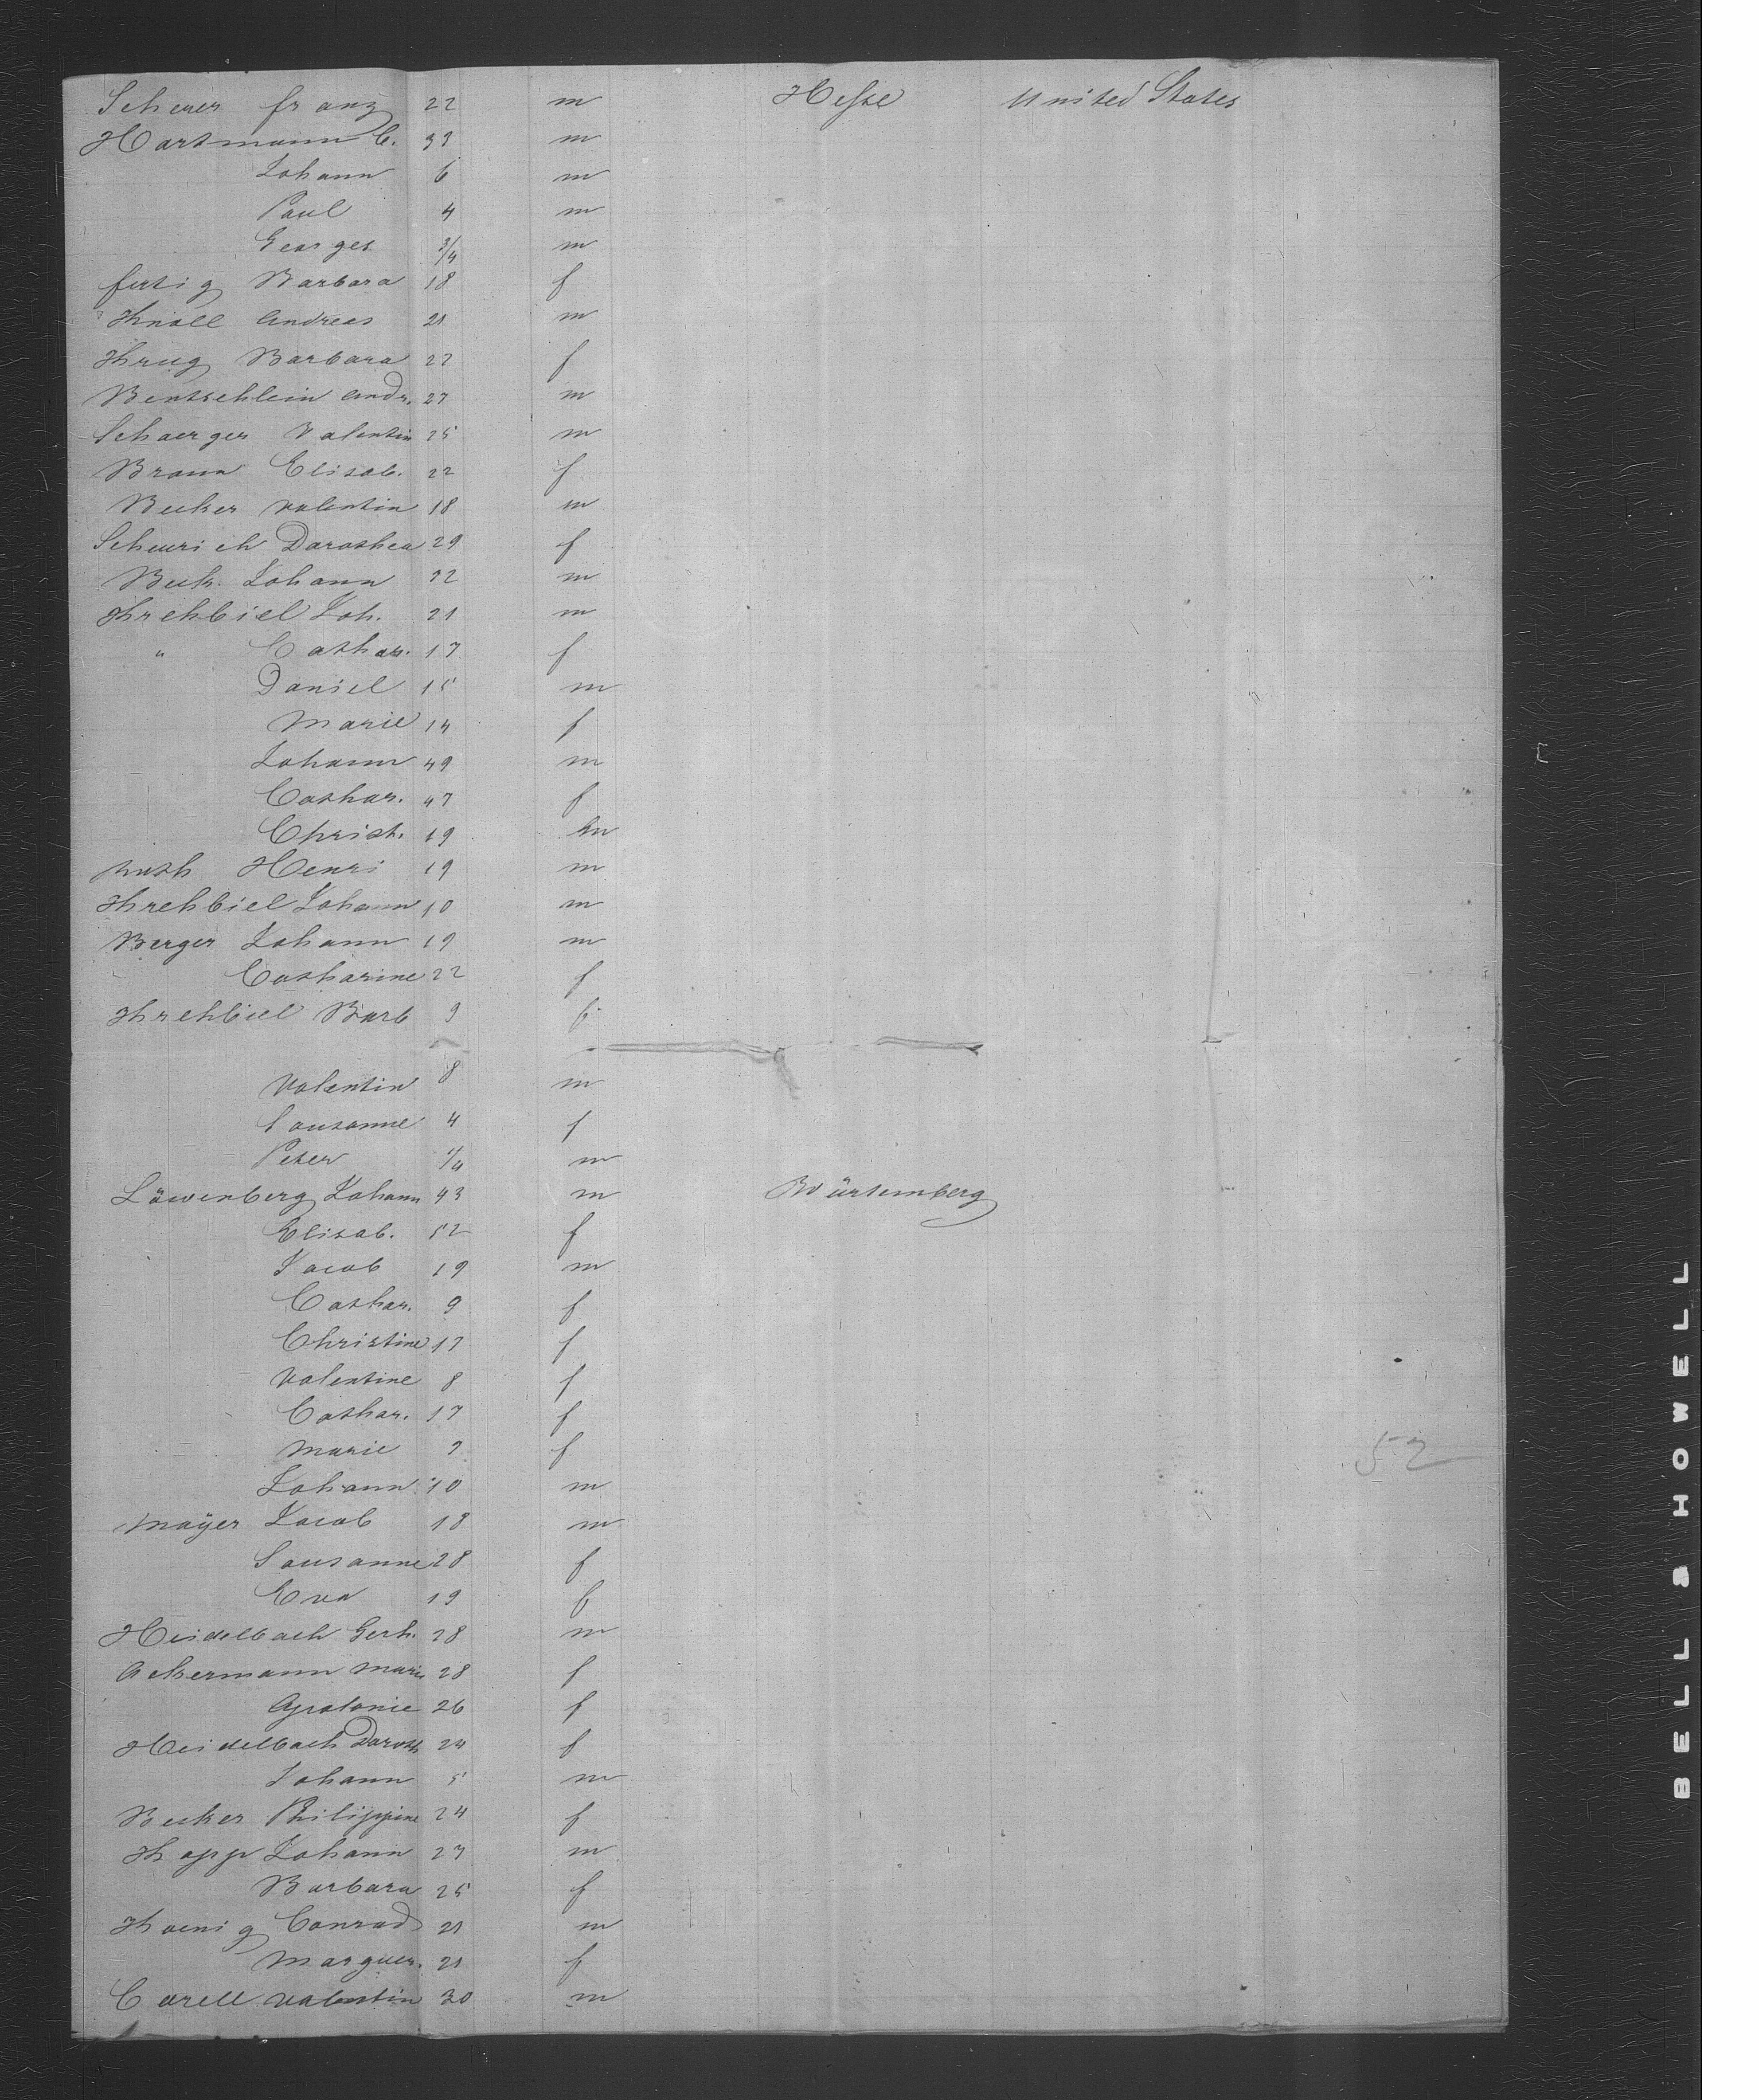 Scheuer Franz 22 m Hesse United States
Hartmann C. 33 m
Johann 6 m
Paul 4 m
Georges 3/4 m
Fertig Barbara 18 f
Knoll Andreas 21 m
Krug Barbara 22 f
Bentschlein Andr. 27 m
Schaerger Valentin 25 m
Braun Elisab. 22 f
Becker Valentin 18 m
Scheurich Dorothea 29 f
Beck Johann 32 m
Krehbiel Joh. 21 m
" Cathar. 17 f
Daniel 15 m
Marie 14 f
Johann 49 m
Cathar. 47 f
Christ. 19 m
Henri 19 m
Krehbiel Johann 10 m
Berger Johann 19 m
Catharine 22 f
Krehbiel Barb 9 f
Valentin 8 m
Sousanne 4 f
Peter 1/4 m
Löwenberg Johann 43 m Würtemberg
Elisab. 52 f
Jacob 19 m
Cathar. 9 f
Christine 17 f
Valentine 8 f
Cathar. 17 f
Marie 9 f
Johann 10 m
Mayer Jacob 18 m
Sousanne 28 f
Eva 19 f
Heidelbach Gerh. 28 m
Ackermann Marie 28 f
Apolonie 26 f
Heidelbach Doroth 24 f
Johann 5 m
Becker Philippine 24 f
Kapp Johann 27 m
Barbara 25 f
Koenig Conrad 21 m
Marguer. 21 f
Carell Valentin 30 m
52
BELL & HOWELL